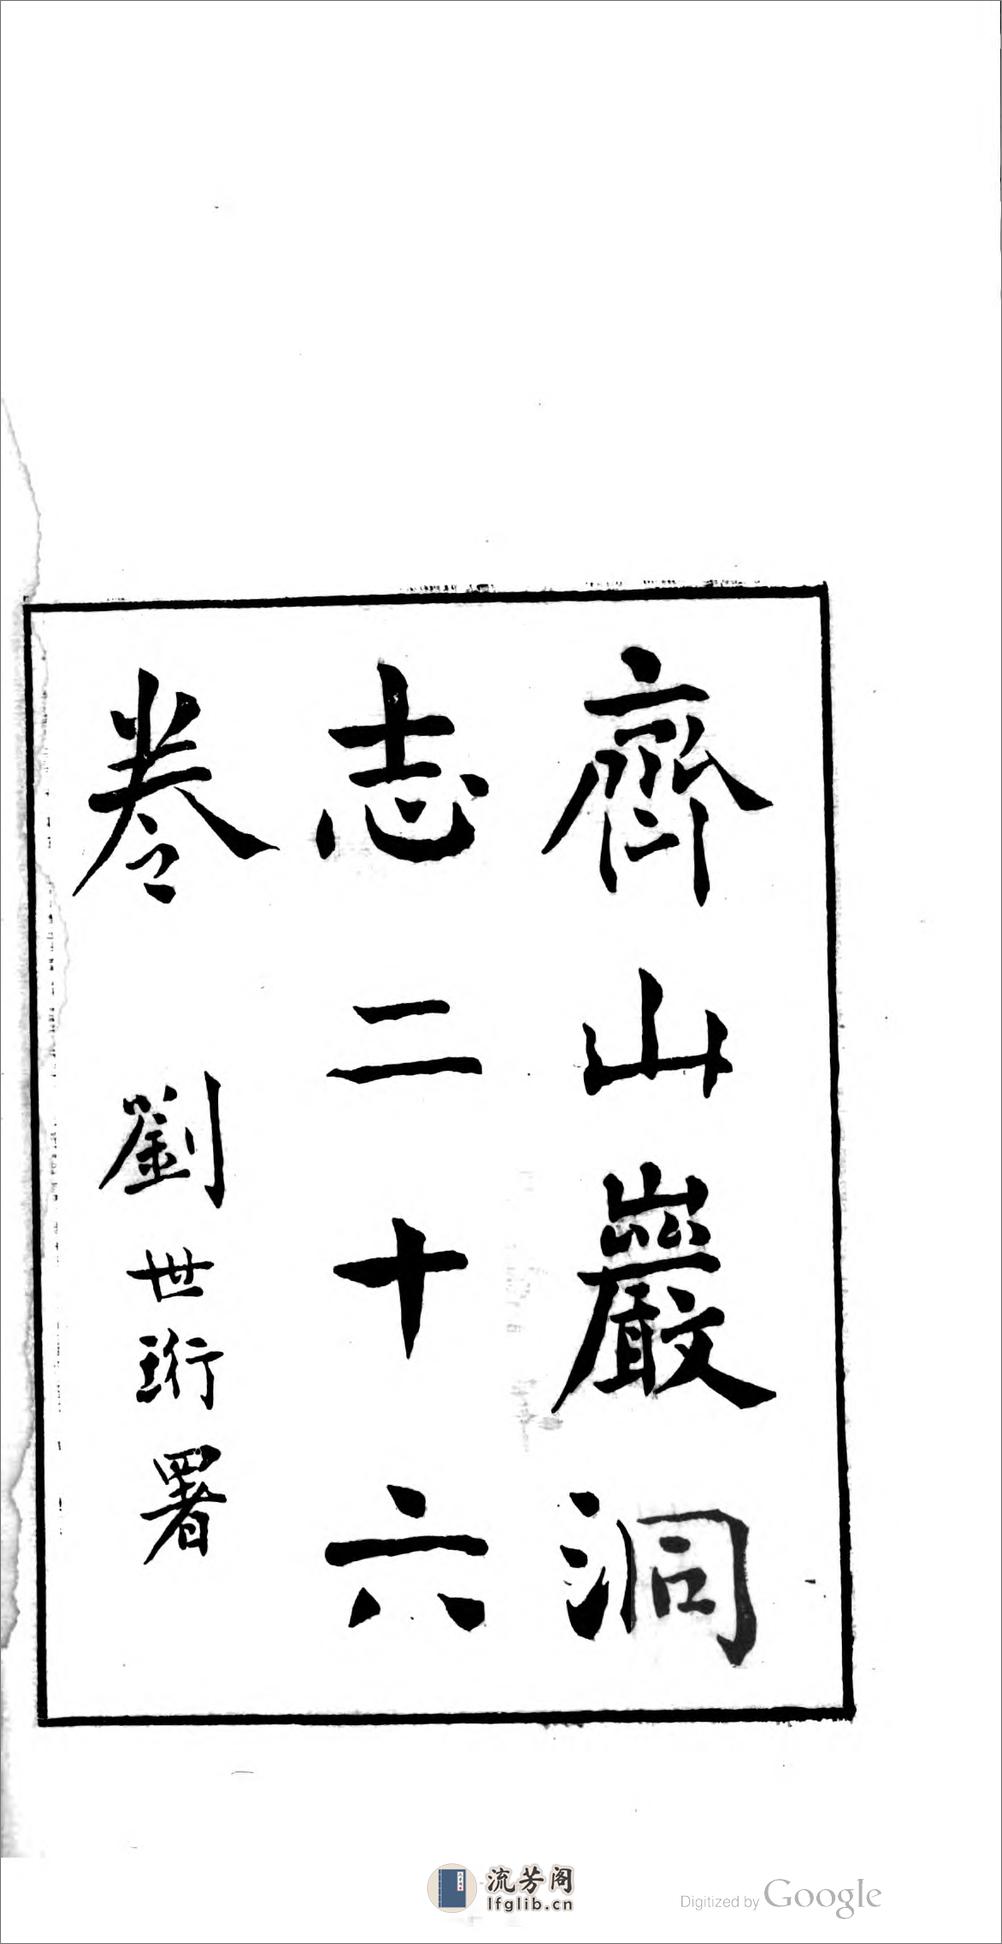 齊山巖洞
志二十六
卷 劉世珩署
流芳阁
lfglib.cn
Digitized by Google